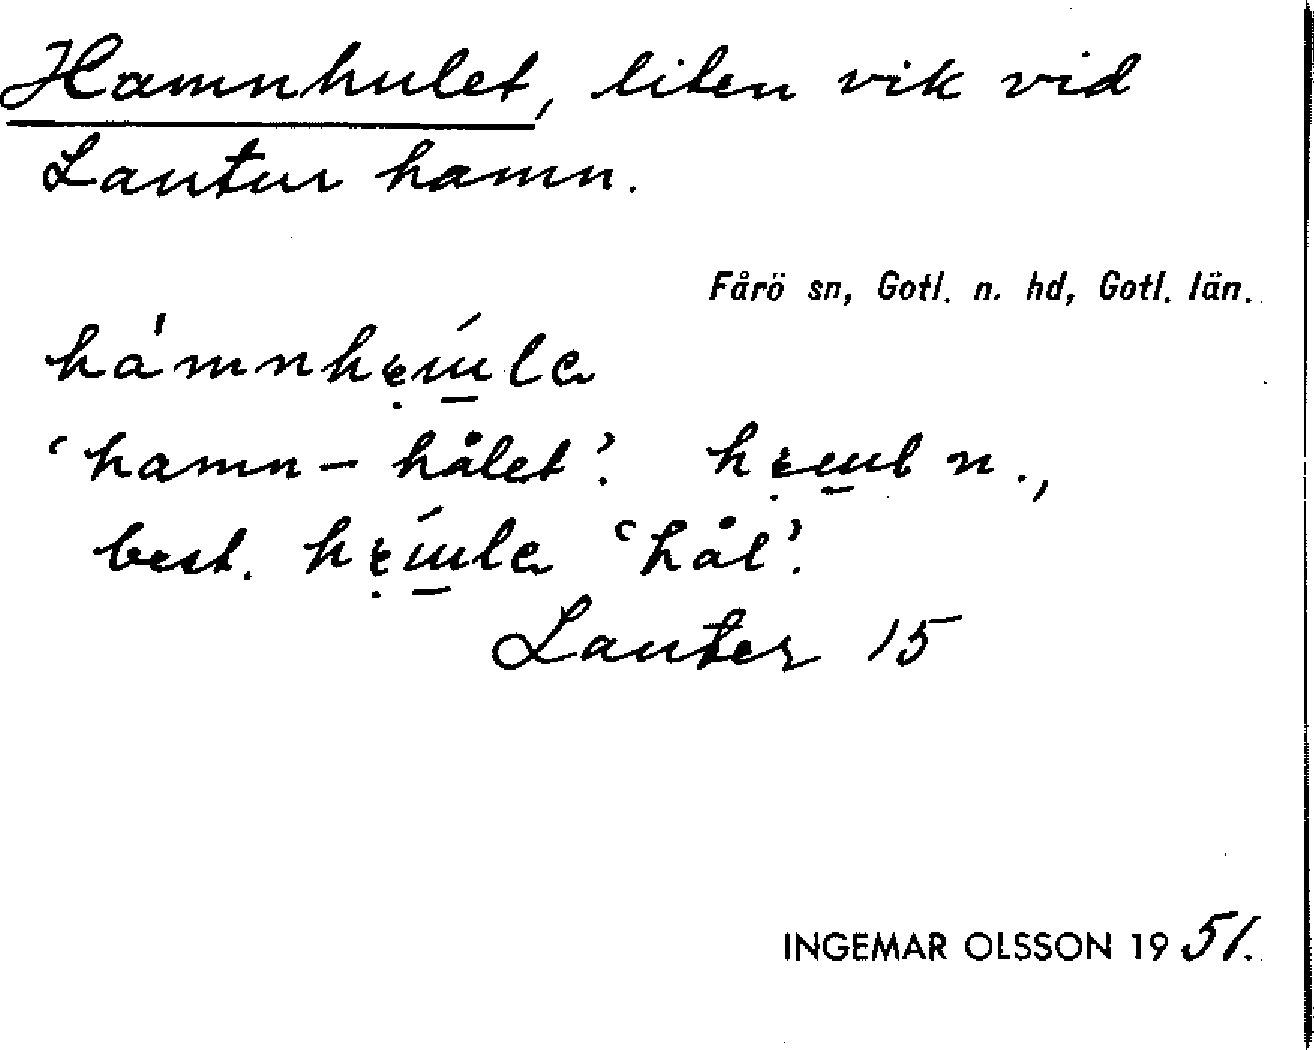 Hamnhulet, liten vik vid
Lautur hamn.
Fårö sn, Gotl. n. hd, Gotl. län.
'hamn-hålet'. n.,
best. 'hål'.
Lauter 15
INGEMAR OLSSON 1951.